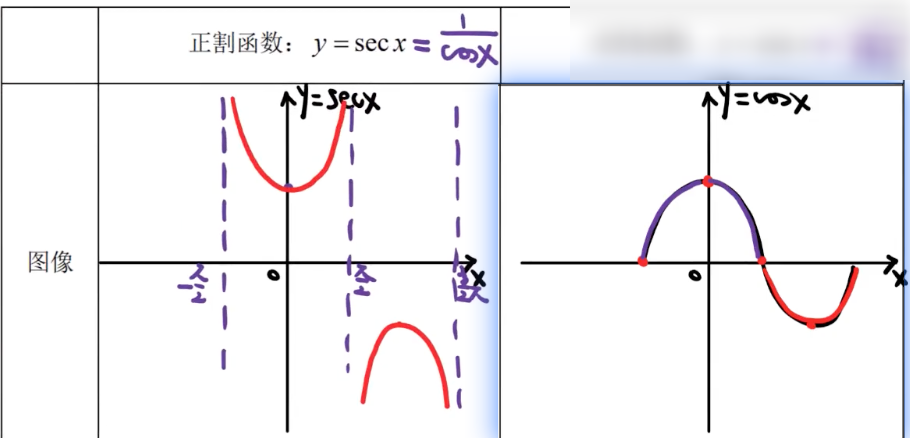 正割函数：y = sec x = 1/cosx
图像
y=secx
-π/2
0
π/2
3/2π
x
y=cosx
0
x